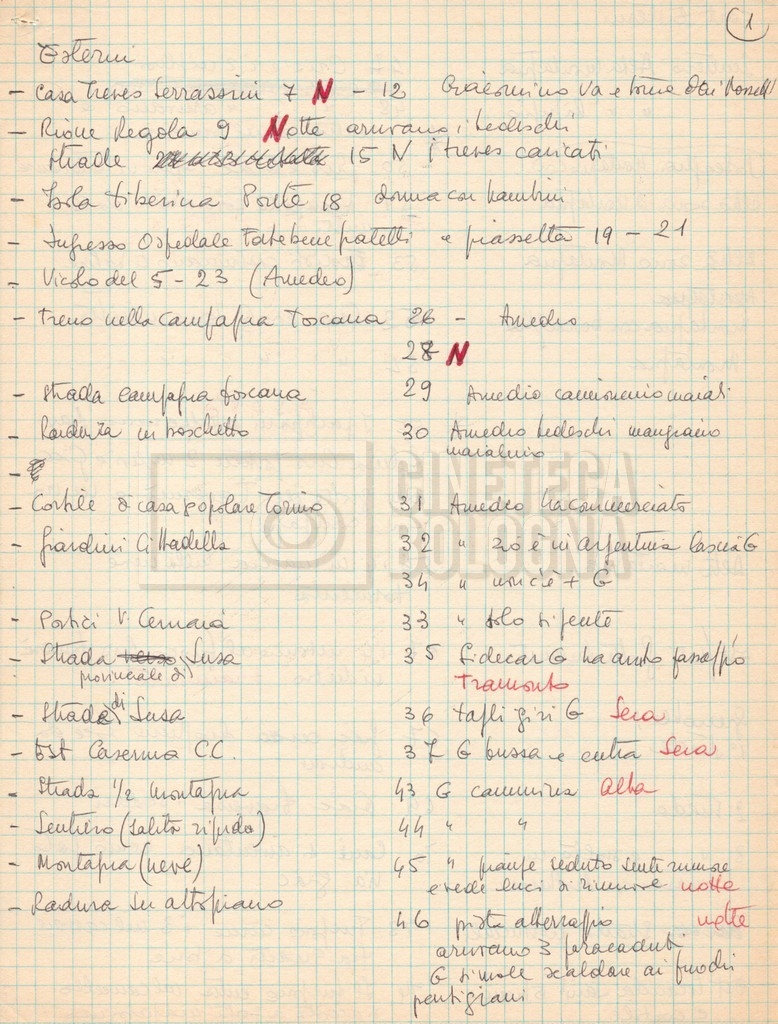 1
Esterni
- Casa Treves Serrassini 7 N - 12 Giacomino va e torna dai
- Rione Regola 9 Notte arrivano i tedeschi
Strade 15 N i treves caricati
- Isola tiberina Ponte 18 donna con bambini
- Ingresso Ospedale Fatebenefratelli e piazzetta 19 - 21
- Vicolo del 5 - 23 (Amedeo)
- treno nella campagna toscana 26 - Amedeo
28 N
- Strada campagna toscana 29 Amedeo camioncino maiali
- Radura in boschetto 30 Amedeo tedeschi mangiano
maialino
-
- Cortile di casa popolare Torino 31 Amedeo ha commerciato
- Giardini Cittadella 32 " zio è in argentina lascia G
34 " non c'è + G
- Portici V. Cernaia 33 " solo si pente
- Strada Susa 35 Sidecar G ha avuto passaggio
provinciale di
Tramonto
- Strada di Susa 36 tagli giri G Sera
- Est Caserma CC. 37 G bussa e entra Sera
- Strada 1/2 montagna 43 G cammina Alba
- Sentiero (salita ripida) 44 " "
- Montagna (neve) 45 " piange seduto sente rumore
e vede luci di rumore notte
- Radura su altopiano 46 pista atterraggio notte
arrivano 3 paracaduti
G si vuole scaldare ai fuochi
partigiani
CINETECA
BOLOGNA